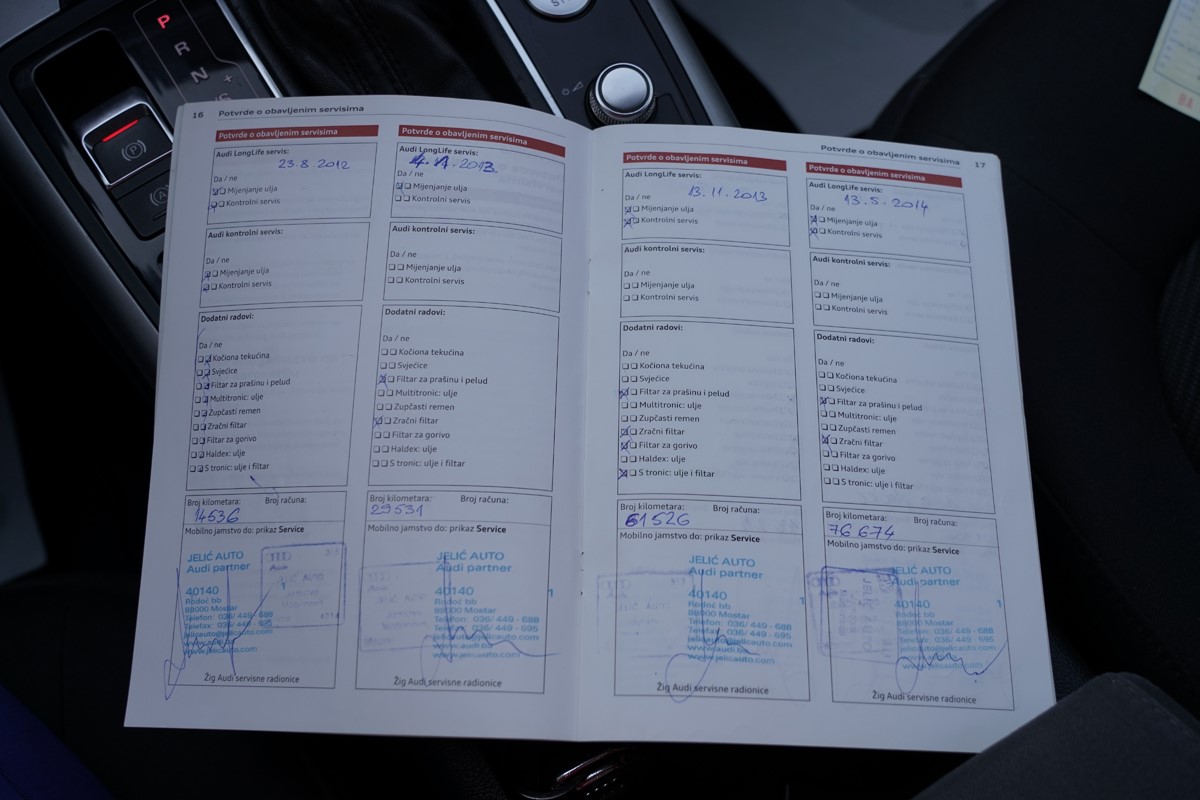 P
R
N
16 Potvrde o obavljenim servisima
Potvrde o obavljenim servisima
Audi LongLife servis:
23.8.2012
Da / ne
Mijenjanje ulja
Kontrolni servis
Audi kontrolni servis:
Da / ne
Mijenjanje ulja
Kontrolni servis
Dodatni radovi:
Da / ne
Kočiona tekućina
Svjećice
Filtar za prašinu i pelud
Multitronic: ulje
Zupčasti remen
Zračni filtar
Filtar za gorivo
Haldex: ulje
S tronic: ulje i filtar
Broj kilometara: Broj računa:
14536
Mobilno jamstvo do: prikaz Service
JELIĆ AUTO
Audi partner
40140
Rodoč bb
88000 Mostar
Telefon: 036/ 449 - 688
Telefax: 036/ 449 - 695
jelicauto@jelicauto.com
www.jelicauto.com
Žig Audi servisne radionice
Potvrde o obavljenim servisima
Audi LongLife servis:
2013.
Da / ne
Mijenjanje ulja
Kontrolni servis
Audi kontrolni servis:
Da / ne
Mijenjanje ulja
Kontrolni servis
Dodatni radovi:
Da / ne
Kočiona tekućina
Svjećice
Filtar za prašinu i pelud
Multitronic: ulje
Zupčasti remen
Zračni filtar
Filtar za gorivo
Haldex: ulje
S tronic: ulje i filtar
Broj kilometara: Broj računa:
29531
Mobilno jamstvo do: prikaz Service
JELIĆ AUTO
Audi partner
40140 1
Rodoč bb
88000 Mostar
Telefon: 036/ 449 - 688
Telefax: 036/ 449 - 695
jelicauto@jelicauto.com
www.audi.ba
www.jelicauto.com
Žig Audi servisne radionice
Potvrde o obavljenim servisima 17
Potvrde o obavljenim servisima
Audi LongLife servis:
13.11.2013
Da / ne
Mijenjanje ulja
Kontrolni servis
Audi kontrolni servis:
Da / ne
Mijenjanje ulja
Kontrolni servis
Dodatni radovi:
Da / ne
Kočiona tekućina
Svjećice
Filtar za prašinu i pelud
Multitronic: ulje
Zupčasti remen
Zračni filtar
Filtar za gorivo
Haldex: ulje
S tronic: ulje i filtar
Broj kilometara: Broj računa:
61526
Mobilno jamstvo do: prikaz Service
JELIĆ AUTO
Audi partner
40140 1
Rodoč bb
88000 Mostar
Telefon: 036/ 449 - 688
Telefax: 036/ 449 - 695
jelicauto@jelicauto.com
www.audi.ba
www.jelicauto.com
Žig Audi servisne radionice
Potvrde o obavljenim servisima
Audi LongLife servis:
13.5.2014
Da / ne
Mijenjanje ulja
Kontrolni servis
Audi kontrolni servis:
Da / ne
Mijenjanje ulja
Kontrolni servis
Dodatni radovi:
Da / ne
Kočiona tekućina
Svjećice
Filtar za prašinu i pelud
Multitronic: ulje
Zupčasti remen
Zračni filtar
Filtar za gorivo
Haldex: ulje
S tronic: ulje i filtar
Broj kilometara: Broj računa:
76 674
Mobilno jamstvo do: prikaz Service
JELIĆ AUTO
Audi partner
40140 1
Rodoč bb
88000 Mostar
Telefon: 036/ 449 - 688
Telefax: 036/ 449 - 695
jelicauto@jelicauto.com
www.jelicauto.com
Žig Audi servisne radionice